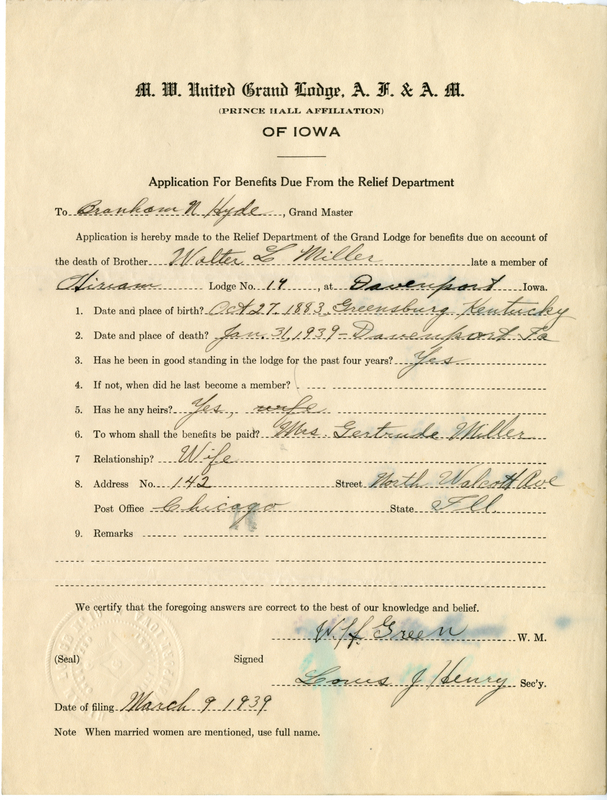 M. W. United Grand Lodge, A. F. & A. M.
(PRINCE HALL AFFILIATION)
OF IOWA
Application For Benefits Due From the Relief Department
To Branham N Hyde, Grand Master
Application is hereby made to the Relief Department of the Grand Lodge for benefits due on account of
the death of Brother Walter L Miller late a member of
Hiriam Lodge No. 14, at Davenport Iowa.
1. Date and place of birth? Oct 27, 1883 Greensburg, Kentucky
2. Date and place of death? Jan. 31, 1939 - Davenport Ia
3. Has he been in good standing in the lodge for the past four years? Yes
4. If not, when did he last become a member?
5. Has he any heirs? Yes, wife
6. To whom shall the benefits be paid? Mrs. Gertrude Miller
7 Relationship? Wife
8. Address No. 142 Street North Walcott Ave
Post Office Chicago State Ill.
9. Remarks
We certify that the foregoing answers are correct to the best of our knowledge and belief.
W. H. Green W. M.
(Seal) Signed
Louis J Henry Sec'y.
Date of filing March 9, 1939
Note When married women are mentioned, use full name.